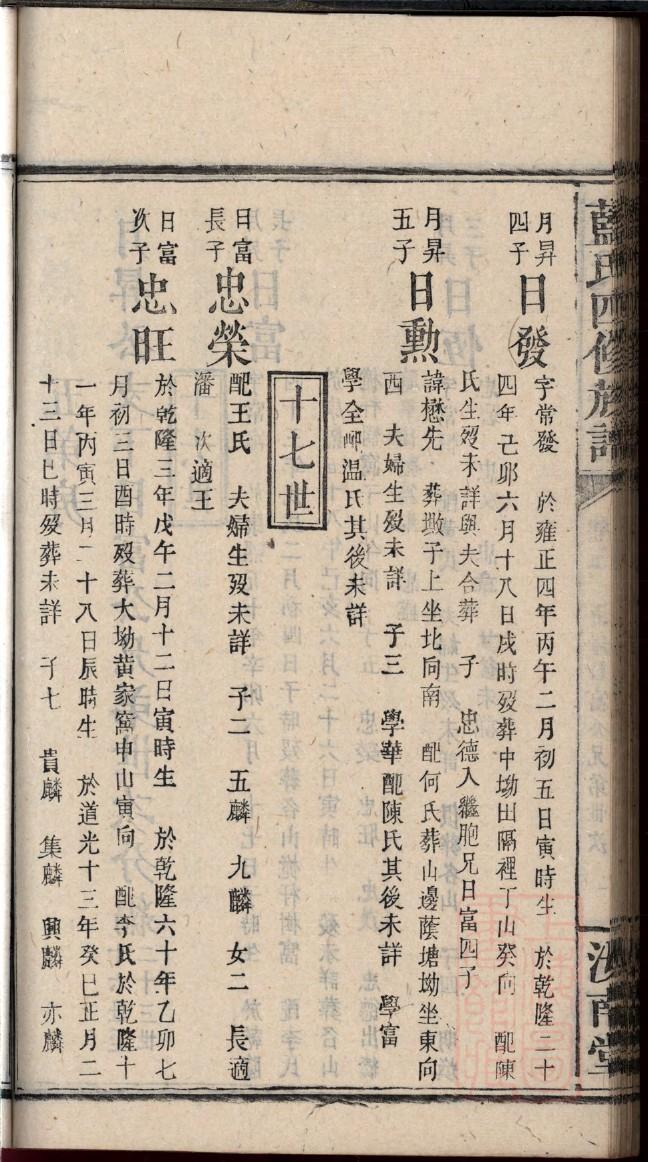 藍氏四修族譜
汝南堂
月昇四子 日發 字常發 於雍正四年丙午二月初五日寅時生 於乾隆二十
四年己卯六月十八日戌時歿葬中坳田隔裡丁山癸向 配陳
氏生歿未詳與夫合葬 子 忠德入繼胞兄日富四子
月昇五子 日勳 諱懋先 葬墩子上坐北向南 配何氏葬山邊蔭塘坳坐東向
西 夫婦生歿未詳 子三 學華配陳氏其後未詳 學富
學全配温氏其後未詳
十七世
日富長子 忠榮 配王氏 夫婦生歿未詳 子二 五麟 九麟 女二 長適
潘 次適王
日富次子 忠旺 於乾隆三年戊午二月十二日寅時生 於乾隆六十年乙卯七
月初三日酉時歿葬大坳黄家窩中山寅向 配李氏於乾隆十
一年丙寅三月二十八日辰時生 於道光十三年癸巳正月二
十三日巳時歿葬未詳 子七 貴麟 集麟 興麟 亦麟